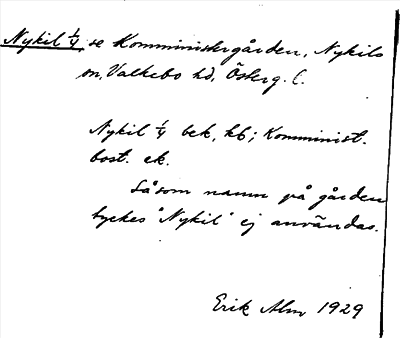 Nykil 1/4 se Komministergården, Nykils
sn, Valkebo hd, Österg. l.
Nykil 1/4 bek, kb; Komminist.
bost. ek.
Såsom namn på gården
tyckes "Nykil" ej användas.
Erik Alm 1929